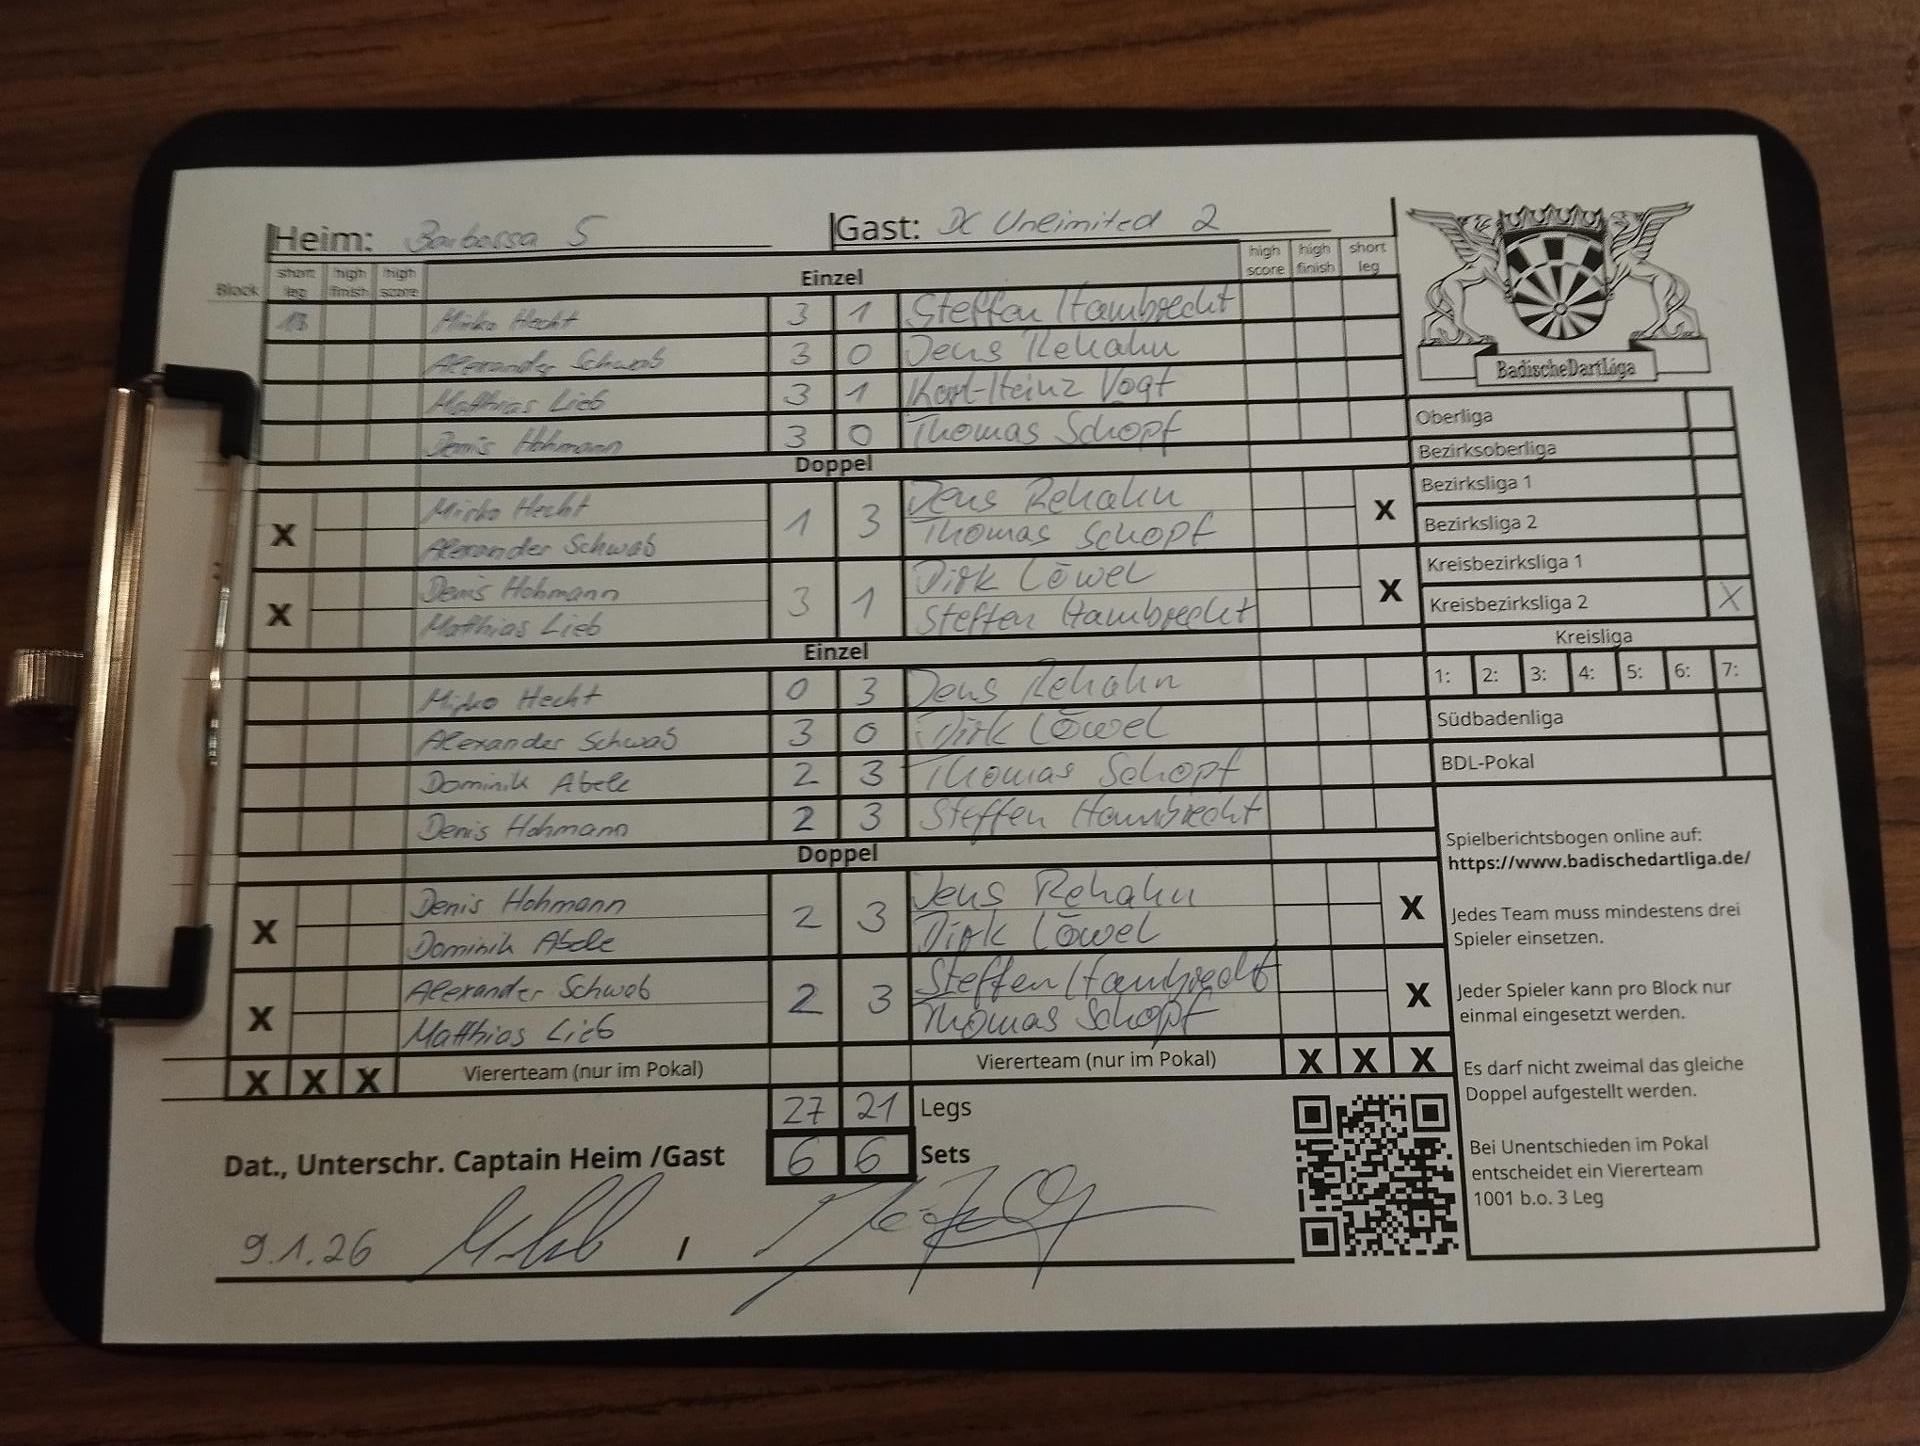 Heim: Barbossa 5 Gast: DC Unlimited 2
Block short leg high finish high score Einzel high score high finish short leg
Mirko Hecht 3 1 Steffen Hambrecht
Alexander Schwab 3 0 Jens Rehahn
Matthias Lieb 3 1 Karl-Heinz Vogt
Denis Hohmann 3 0 Thomas Schopf
Doppel
X Mirko Hecht 1 3 Jens Rehahn X
Alexander Schwab Thomas Schopf
X Denis Hohmann 3 1 Dirk Löwel X
Matthias Lieb Steffen Hambrecht
Einzel
Mirko Hecht 0 3 Jens Rehahn
Alexander Schwab 3 0 Dirk Löwel
Dominik Abele 2 3 Thomas Schopf
Denis Hohmann 2 3 Steffen Hambrecht
Doppel
X Denis Hohmann 2 3 Jens Rehahn X
Dominik Abele Dirk Löwel
X Alexander Schwab 2 3 Steffen Hambrecht X
Matthias Lieb Thomas Schopf
X X X Viererteam (nur im Pokal) Viererteam (nur im Pokal) X X X
27 21 Legs
Dat., Unterschr. Captain Heim /Gast 6 6 Sets
9.1.26 /
BadischeDartLiga
Oberliga
Bezirksoberliga
Bezirksliga 1
Bezirksliga 2
Kreisbezirksliga 1
Kreisbezirksliga 2 X
Kreisliga
1: 2: 3: 4: 5: 6: 7:
Südbadenliga
BDL-Pokal
Spielberichtsbogen online auf:
https://www.badischedartliga.de/
Jedes Team muss mindestens drei
Spieler einsetzen.
Jeder Spieler kann pro Block nur
einmal eingesetzt werden.
Es darf nicht zweimal das gleiche
Doppel aufgestellt werden.
Bei Unentschieden im Pokal
entscheidet ein Viererteam
1001 b.o. 3 Leg